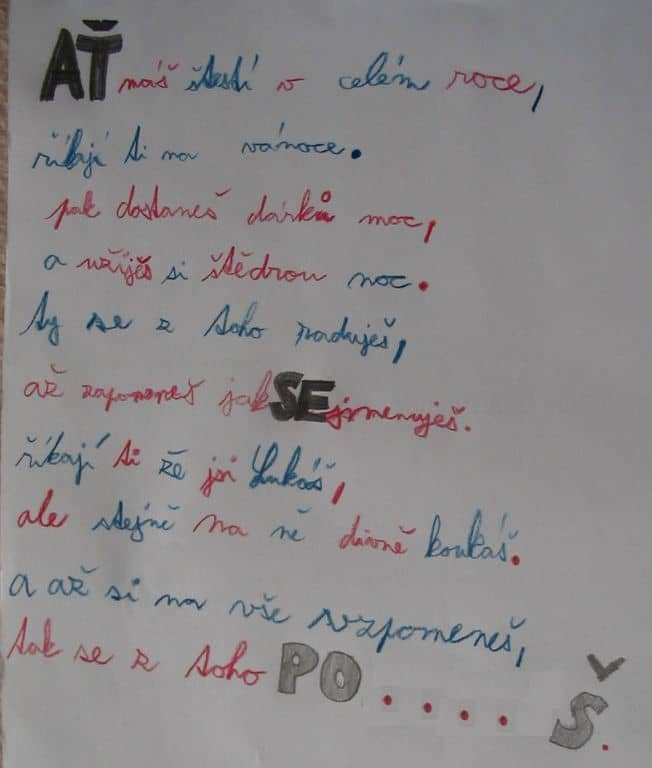 AŤ máš štestí v celém roce,
říkají ti na vánoce.
pak dostaneš dárků moc,
a užiješ si štědrou noc.
ty se z toho raduješ,
až zapomeneš jak SE jmenuješ.
říkají ti že jsi Lukáš,
ale stejně na ně divně koukáš.
a až si na vše vzpomeneš,
tak se z toho PO....Š.